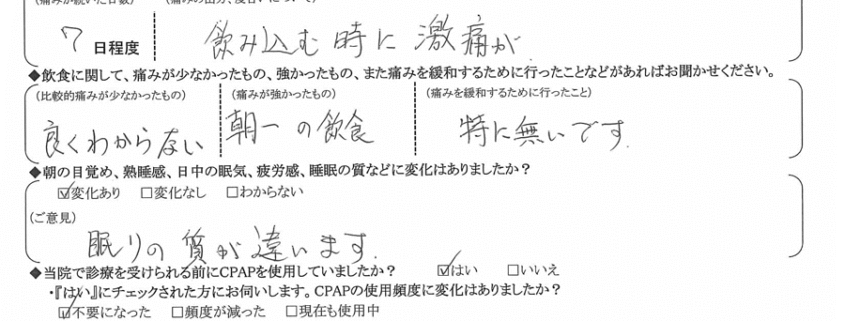 (痛みが続いた日数) (痛みの部分、度合いについて)
7 日程度 飲み込む時に激痛が
◆飲食に関して、痛みが少なかったもの、強かったもの、また痛みを緩和するために行ったことなどがあればお聞かせください。
(比較的痛みが少なかったもの) (痛みが強かったもの) (痛みを緩和するために行ったこと)
良くわからない 朝一の飲食 特に無いです.
◆朝の目覚め、熟睡感、日中の眠気、疲労感、睡眠の質などに変化はありましたか?
☑変化あり □変化なし □わからない
(ご意見)
眠りの質が違います.
◆当院で診療を受けられる前にCPAPを使用していましたか? ☑はい □いいえ
・『はい』にチェックされた方にお伺いします。CPAPの使用頻度に変化はありましたか?
☑不要になった □頻度が減った □現在も使用中